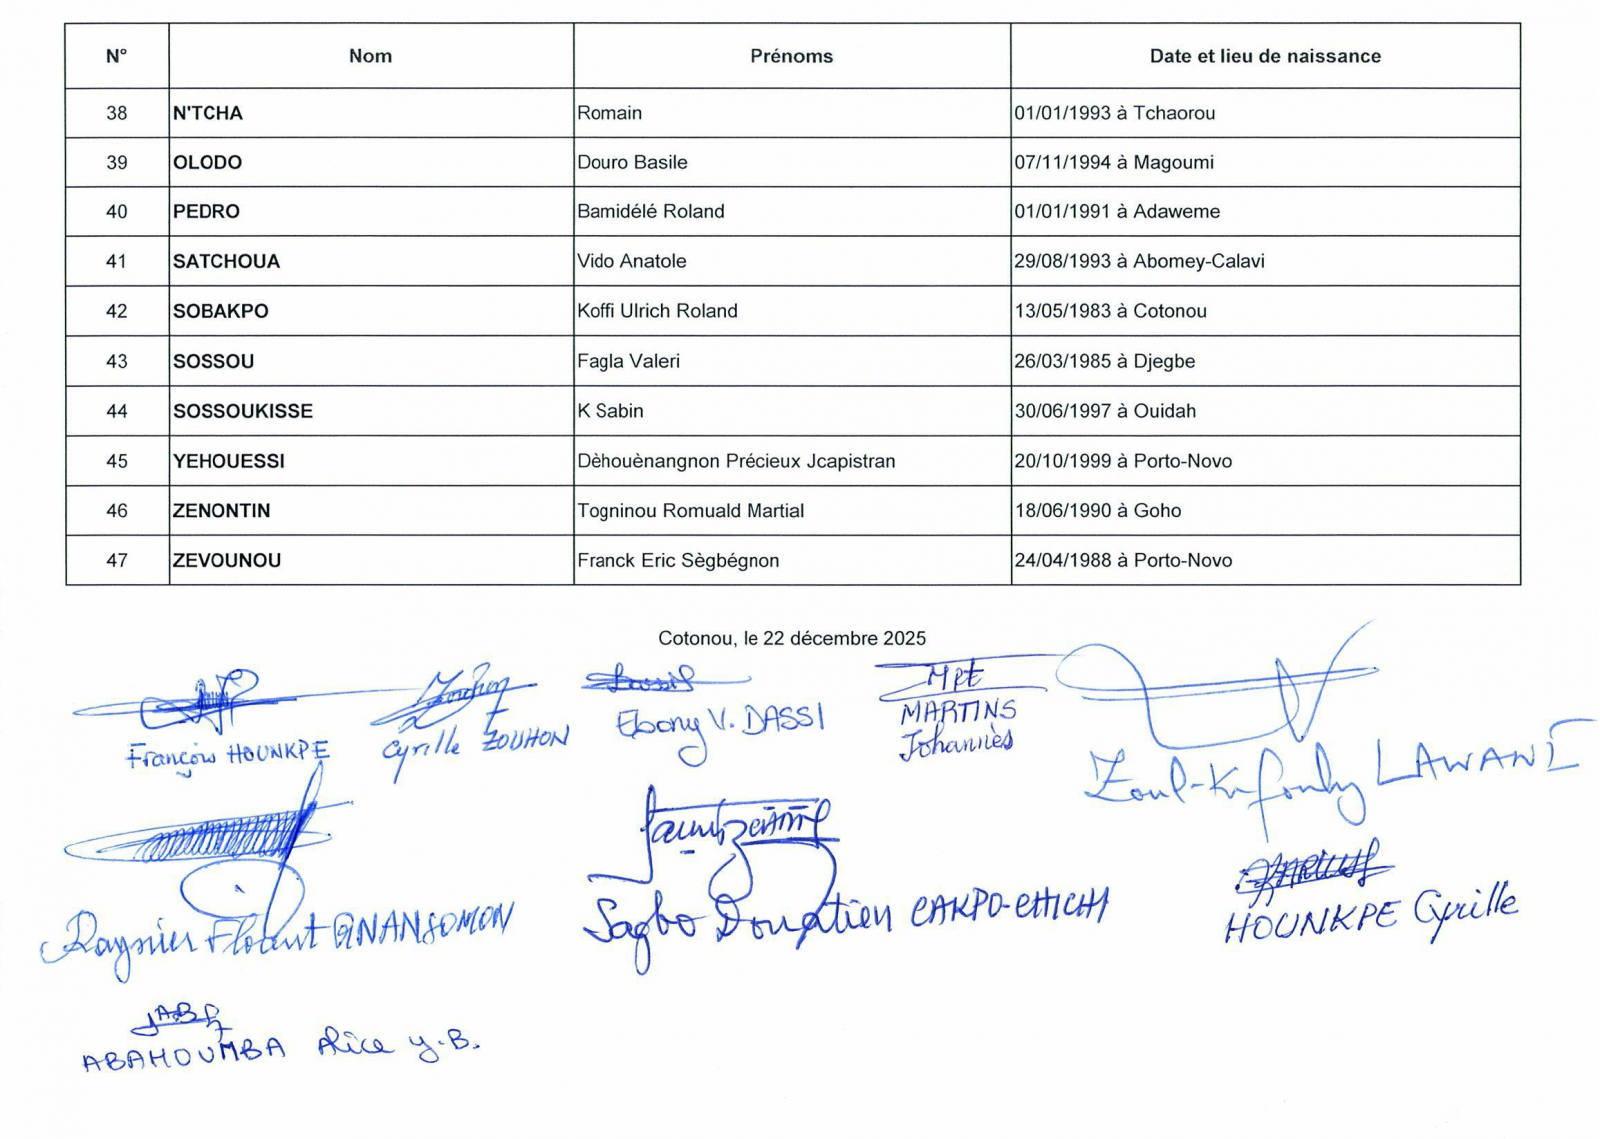 N° Nom Prénoms Date et lieu de naissance
38 N'TCHA Romain 01/01/1993 à Tchaorou
39 OLODO Douro Basile 07/11/1994 à Magoumi
40 PEDRO Bamidélé Roland 01/01/1991 à Adaweme
41 SATCHOUA Vido Anatole 29/08/1993 à Abomey-Calavi
42 SOBAKPO Koffi Ulrich Roland 13/05/1983 à Cotonou
43 SOSSOU Fagla Valeri 26/03/1985 à Djegbe
44 SOSSOUKISSE K Sabin 30/06/1997 à Ouidah
45 YEHOUESSI Dèhouènangnon Précieux Jcapistran 20/10/1999 à Porto-Novo
46 ZENONTIN Togninou Romuald Martial 18/06/1990 à Goho
47 ZEVOUNOU Franck Eric Sègbégnon 24/04/1988 à Porto-Novo
Cotonou, le 22 décembre 2025
François HOUNKPE
Cyrille ZOUHON
Ebony V. DASSI
MARTINS
Johannès
Zoul-Kifouly LAWANI
Raynier Florent GNANSOMON
Sagbo Donatien CAKPO-CHICHI
HOUNKPE Cyrille
ABAHOUMBA Alice Y.B.